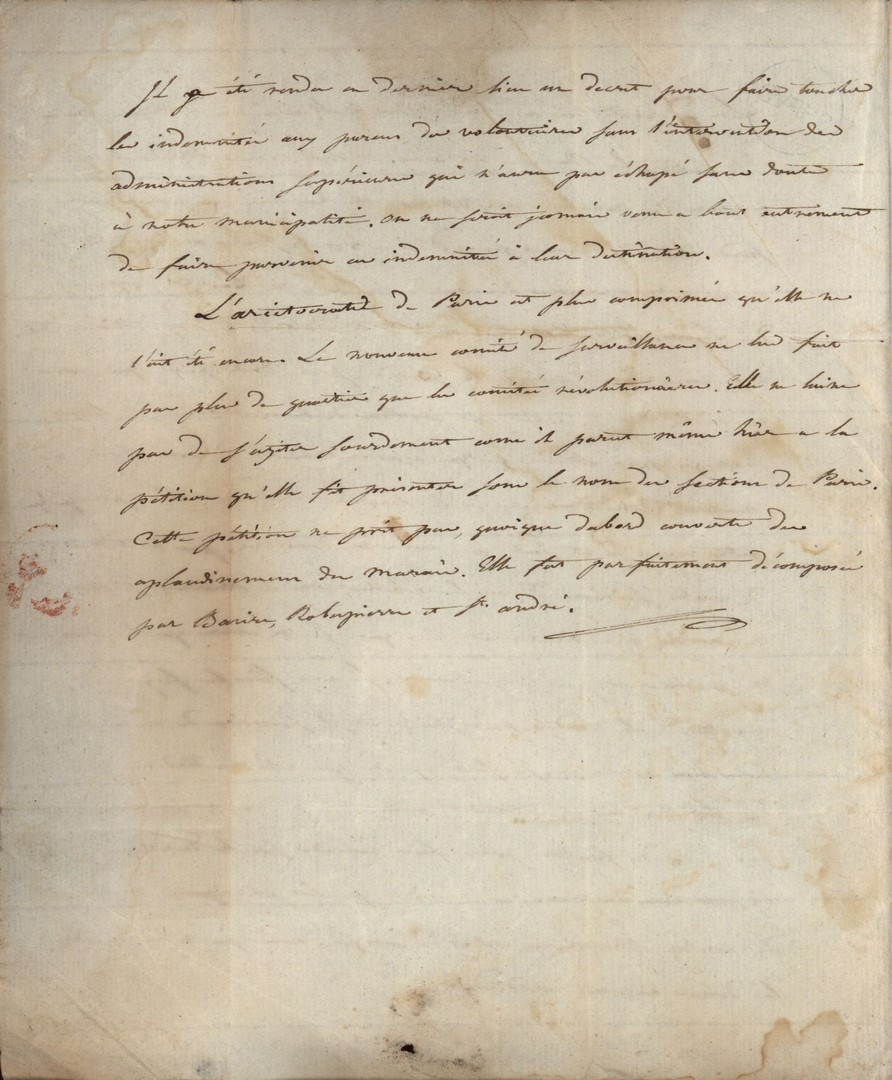 Il a été rendu en dernier lieu un decret pour faire toucher
les indemnités aux parens des volontaires sans l'intervention des
administrations supérieures qui n'aura pas échapé sans doute
à notre municipalité. on ne seroit jamais venu a bout autrement
de faire parvenir ces indemnités à leur destination.
L'aristocratie de Paris est plus comprimée qu'elle ne
l'ait été encore. Le nouveau comité de surveillance ne lui fait
pas plus de quartier que les comités révolutionnaires. Elle ne laisse
pas de s'agiter sourdement come il parut même hier a la
pétition qu'elle fit présenter sous le nom des sections de Paris.
Cette pétition ne prit pas, quoique dabord couverte des
aplaudissemens du marais. Elle fut parfaitement décomposée
par Barère, Robespierre et St. andré.